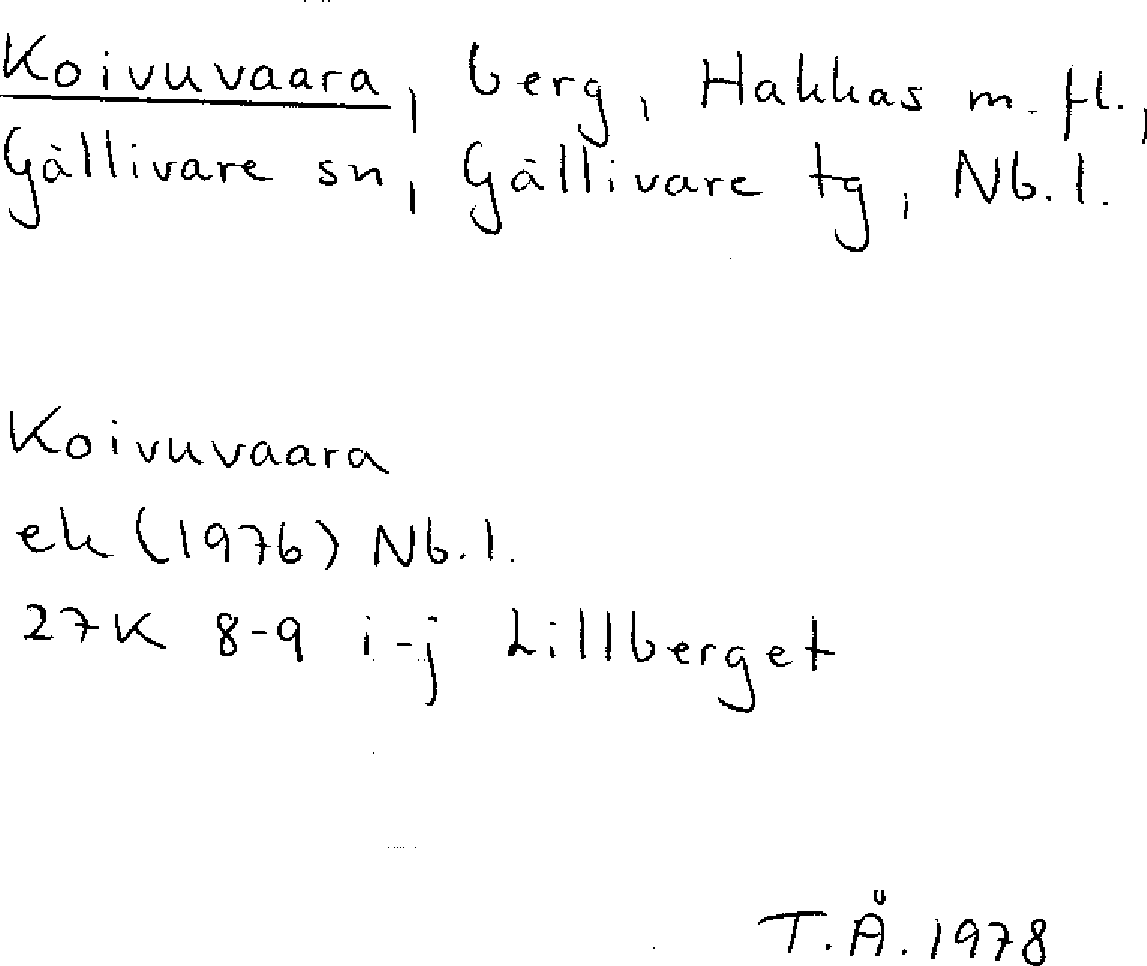 Koivuvaara, berg, Hakkas m. fl.,
Gällivare sn, Gällivare tg, Nb. l.
Koivuvaara
ek (1976) Nb. l.
27K 8-9 i-j Lillberget
T. Å. 1978